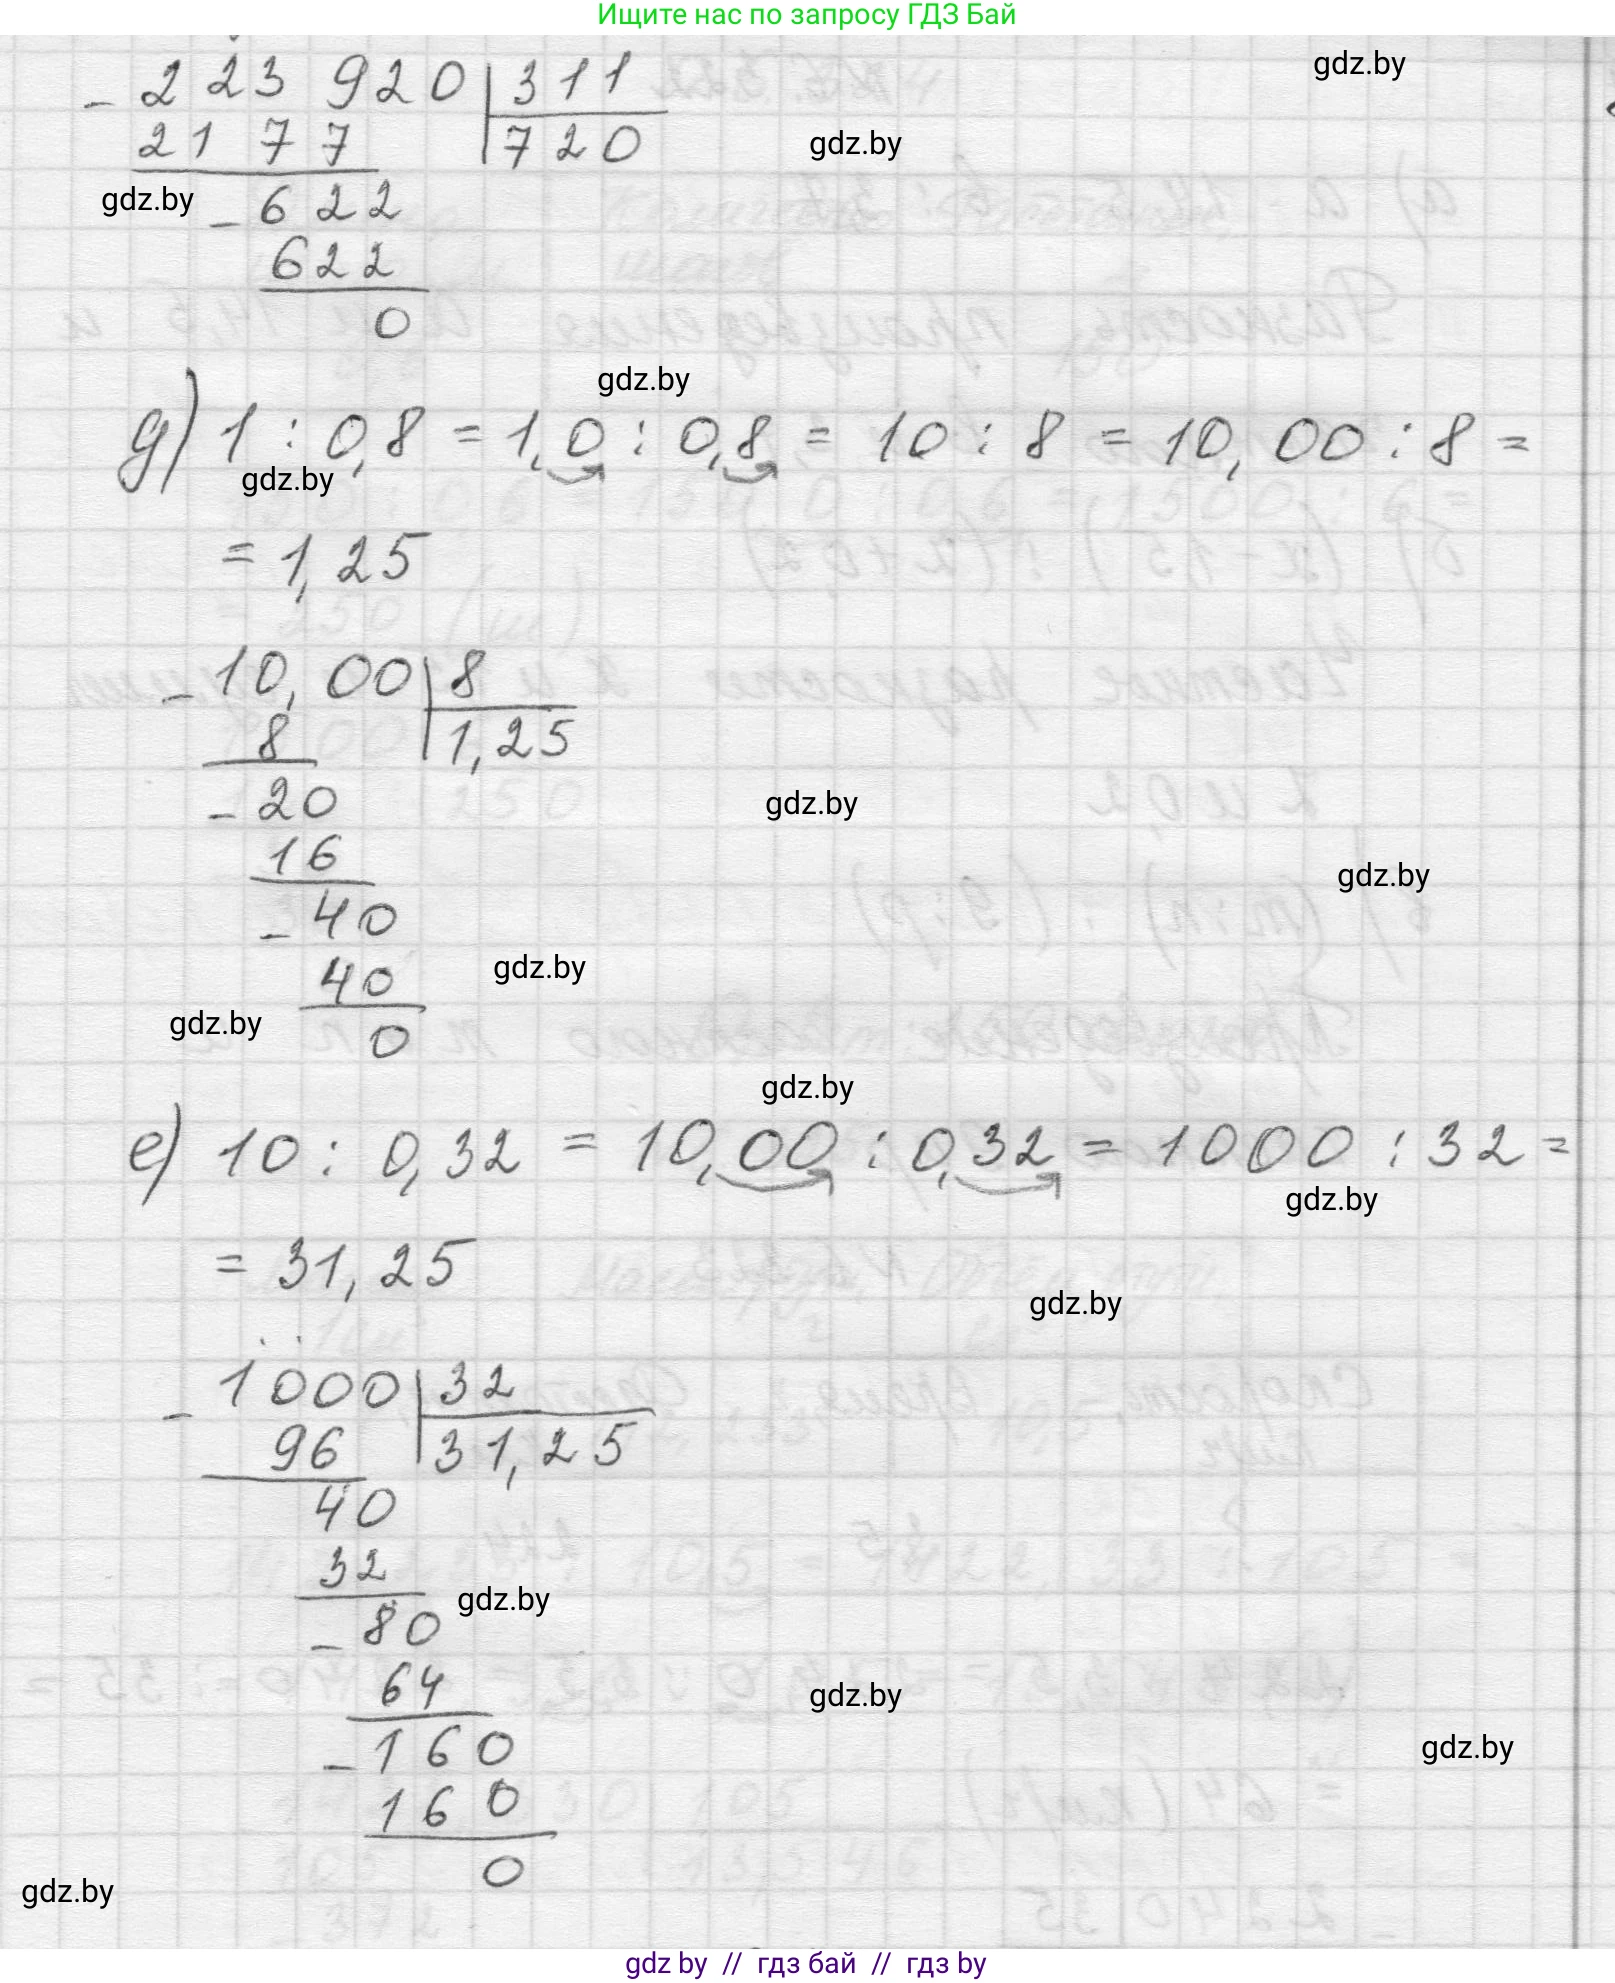 Ищите нас по запросу ГДЗ Бай
gdz.by
- 223 920 | 311
gdz.by
21 77 | 720
gdz.by
- 622
622
0
gdz.by
д) 1 : 0,8 = 1,0 : 0,8 = 10 : 8 = 10,00 : 8 =
gdz.by
= 1,25
- 10,00 | 8
8 | 1,25
- 20
gdz.by
16
gdz.by
- 40
gdz.by
40
gdz.by
0
gdz.by
е) 10 : 0,32 = 10,00 : 0,32 = 1000 : 32 =
gdz.by
= 31,25
gdz.by
- 1000 | 32
96 | 31,25
40
32
gdz.by
- 80
64
gdz.by
- 160
gdz.by
160
0
gdz.by
gdz by // гдз бай // гдз by